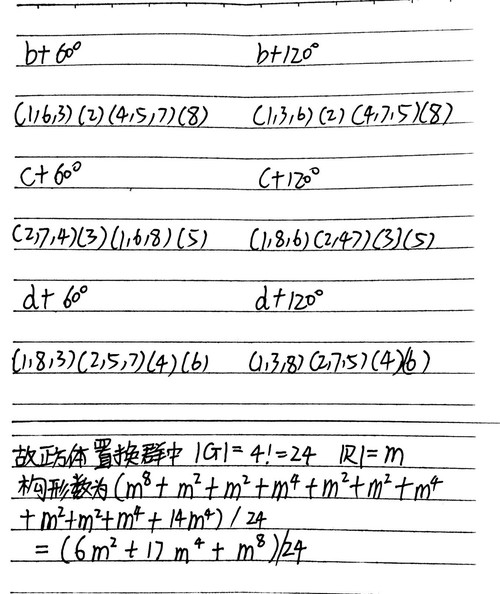 b+60° b+120°
(1,6,3)(2)(4,5,7)(8) (1,3,6)(2)(4,7,5)(8)
c+60° c+120°
(2,7,4)(3)(1,6,8)(5) (1,8,6)(2,47)(3)(5)
d+60° d+120°
(1,8,3)(2,5,7)(4)(6) (1,3,8)(2,7,5)(4)(6)
故正方体置换群中 |G|=4!=24 |R|=m
构形数为(m⁸+m²+m²+m⁴+m²+m²+m⁴
+m²+m²+m⁴+14m⁴)/24
=(6m²+17m⁴+m⁸)/24